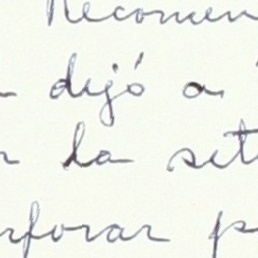 Recomen
dejó a
la set
rforar p